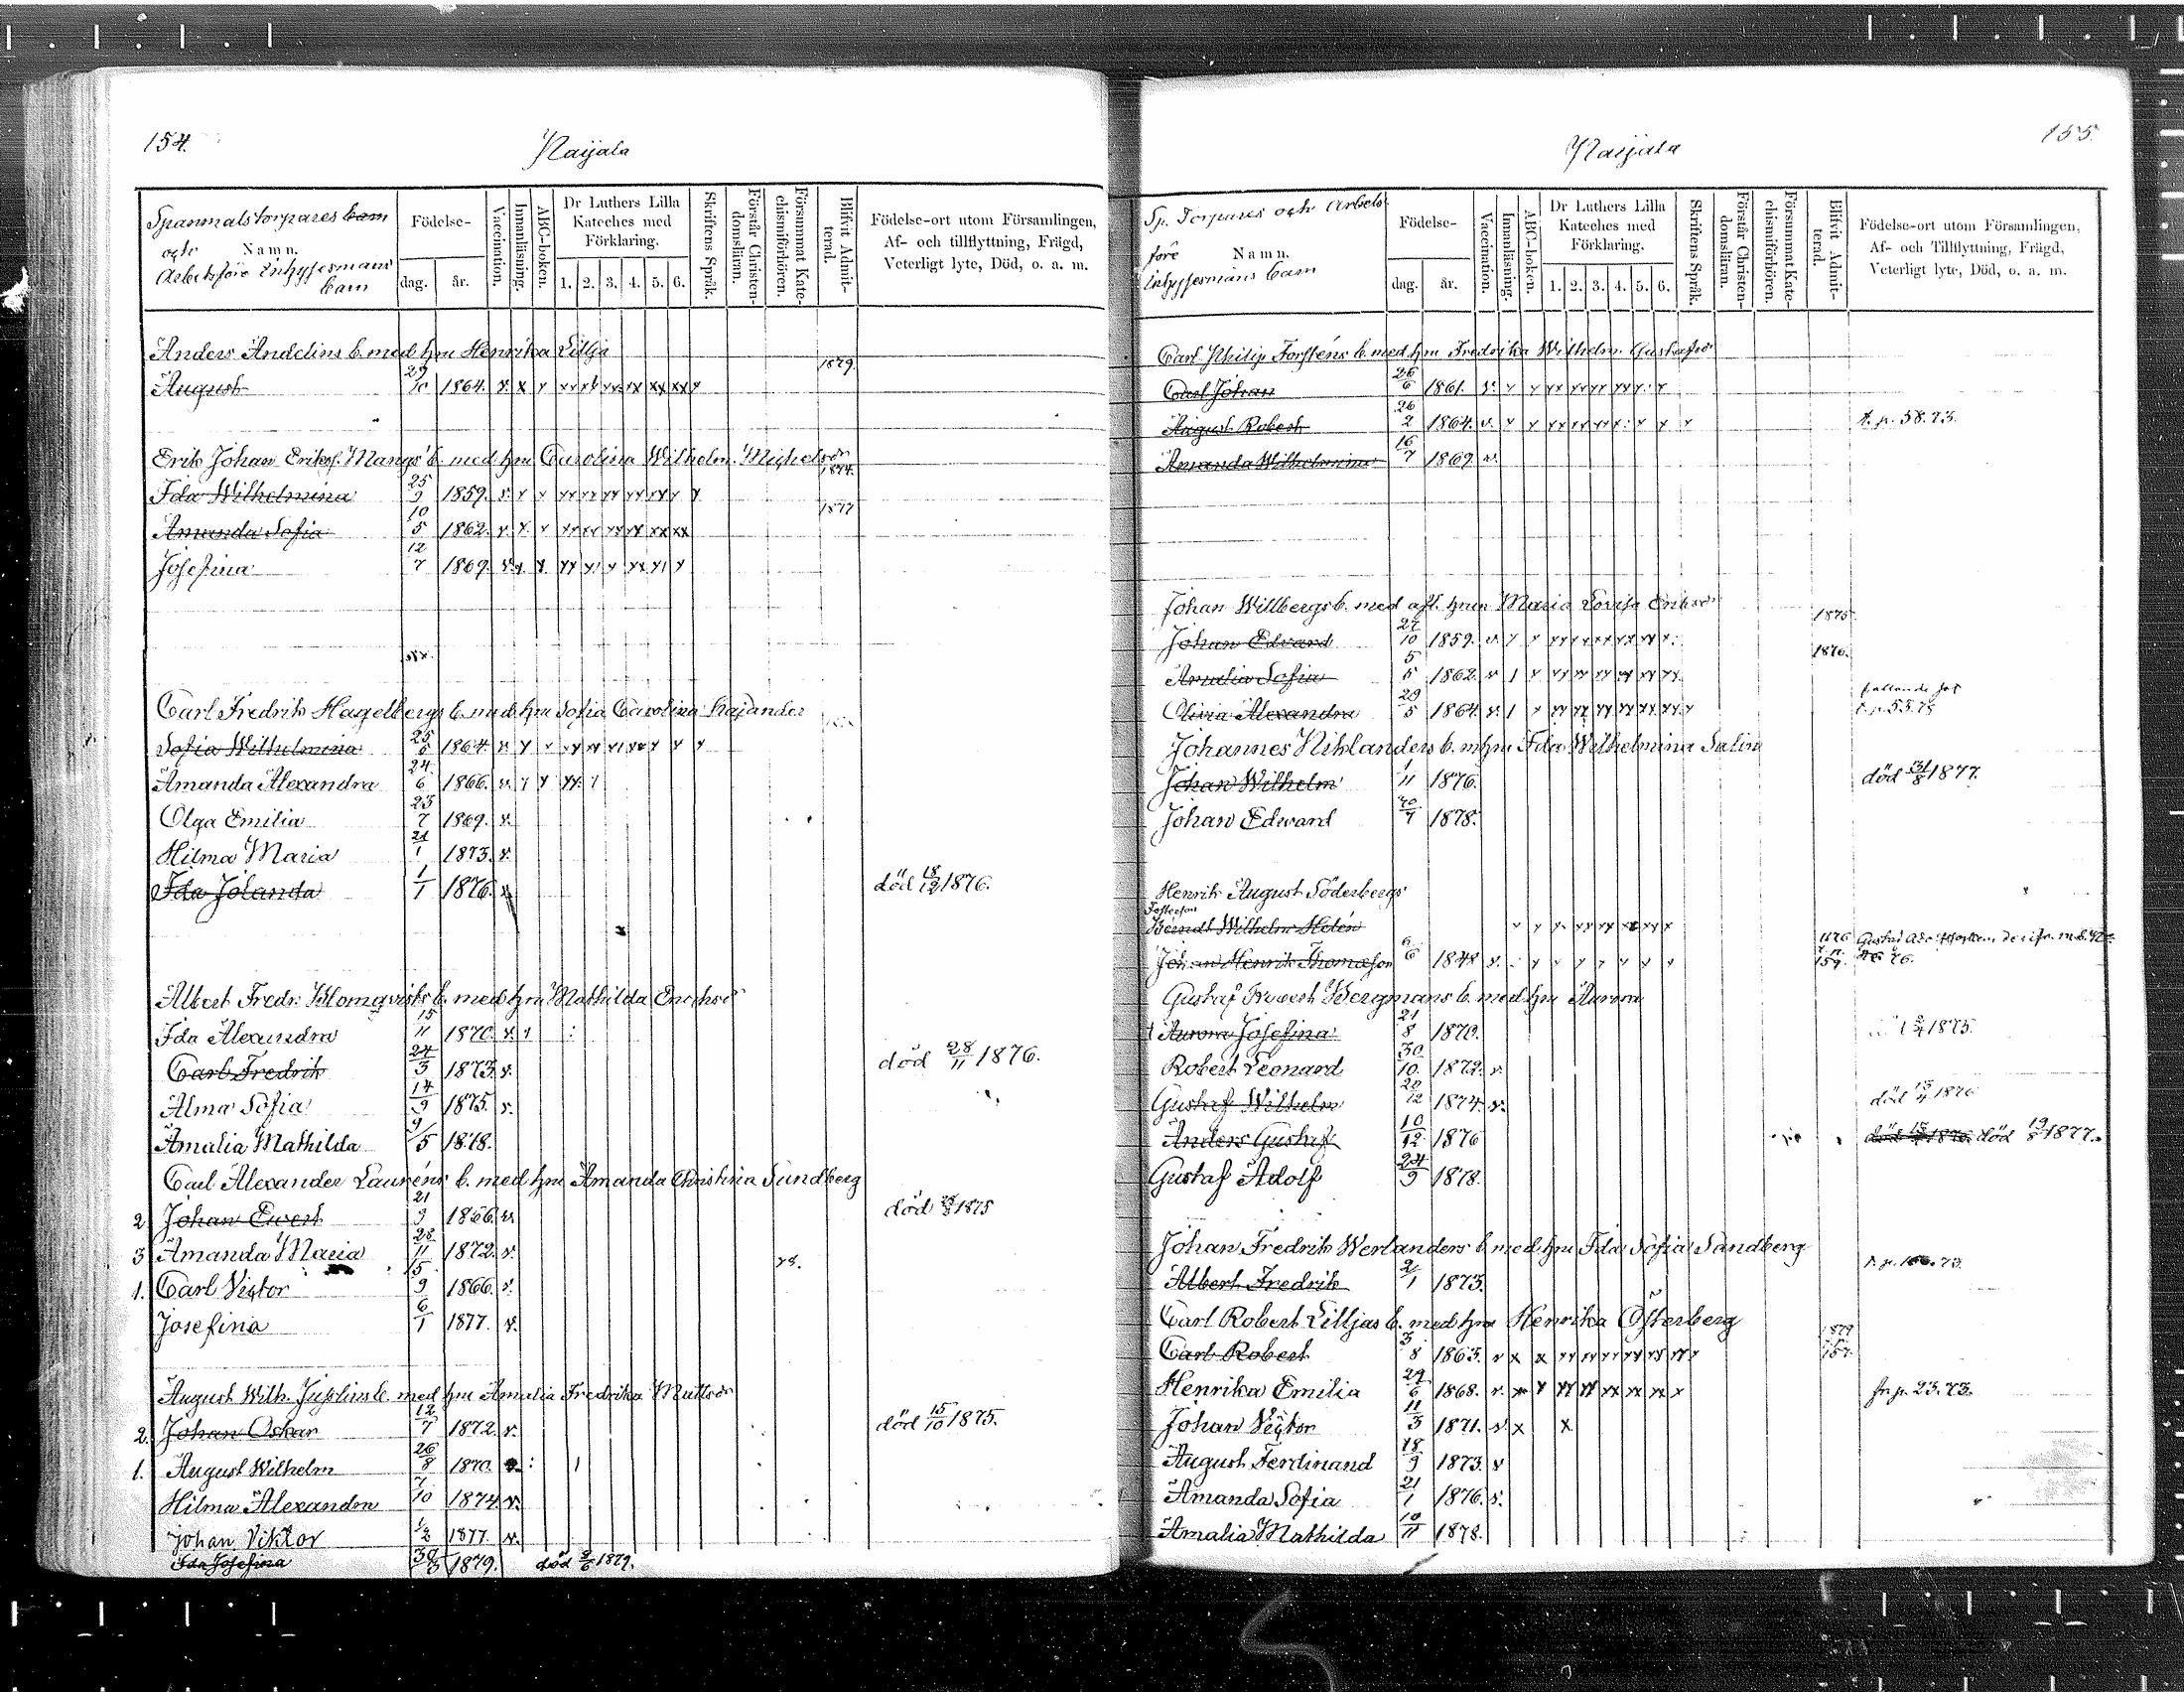 154.
Naijala
Spanmålstorpares barn
och Namn.
Arbetsföre Inhysesmäns
barn
Födelse-
dag. år.
Vaccination.
Innanläsning.
ABC-boken.
Dr Luthers Lilla
Kateches med
Förklaring.
1. 2. 3. 4. 5. 6.
Skriftens Språk.
Förstår Christen-
domsläran.
Försummat Kate-
chismiförhören.
Blifvit Admit-
terad.
Födelse-ort utom Församlingen,
Af- och tillflyttning, Frägd,
Veterligt lyte, Död, o. a. m.
Anders Andelins b. med hru Henrika Lillja
August 29/10 1864. 1879.
Erik Johan Eriks. Mangs b. med hru Carolina Wilhelm. Michelsdr
Ida Wilhelmina 25/9 1859. 1874.
Amanda Sofia 10/5 1862. 1877
Josefina 12/7 1869.
Carl Fredrik Hagelbergs b. med hru Sofia Carolina Kajander
Sofia Wilhelmina 25/5 1864.
Amanda Alexandra 24/6 1866.
Olga Emilia 23/7 1869. v.
Hilma Maria 21/1 1873. v.
Ida Jolanda 1/1 1876. död 18/12 1876.
Albert Fredr. Blomqvists b. med hru Mathilda Erichsdr
Ida Alexandra 15/11 1870. v.
Carl Fredrik 24/3 1873. v. död 28/11 1876.
Alma Sofia 14/9 1875. v.
Amalia Mathilda 9/5 1878.
Carl Alexander Lauréns b. med hru Amanda Christina Sundberg
2 Johan Evert 21/9 1866. v. död 1875
3 Amanda Maria 28/11 1872. v.
1. Carl Victor 15/9 1866. v.
Josefina 6/1 1877. v.
August Wilh. Juslins b. med hru Amalia Fredrika Mattsdr
2. Johan Oskar 12/7 1872. v. död 15/10 1875.
1. August Wilhelm 26/8 1870.
Hilma Alexandra 1/10 1874. v.
Johan Viktor 1/2 1877. v.
Ida Josefina 30/3 1879. död 9/6 1879.
155.
Naijala
Sp. Torpares och Arbets-
före Namn.
Inhysesmäns barn
Födelse-
dag. år.
Vaccination.
Innanläsning.
ABC-boken.
Dr Luthers Lilla
Kateches med
Förklaring.
1. 2. 3. 4. 5. 6.
Skriftens Språk.
Förstår Christen-
domsläran.
Försummat Kate-
chismiförhören.
Blifvit Admit-
terad.
Födelse-ort utom Församlingen,
Af- och Tillflyttning, Frägd,
Veterligt lyte, Död, o. a. m.
Carl Philip Forsténs b. med hru Fredrika Wilhelm. Gustafsdr
Carl Johan 26/6 1861.
August Robert 26/2 1864. t. p. 58. 73.
Amanda Wilhelmina 16/7 1869. v.
Johan Willbergs b. med afl. hrun Maria Lovisa Eriksdr
Johan Edvard 27/10 1859. 1875
Amalia Sofia 5/5 1862. 1876.
Olivia Alexandra 29/5 1864.
Johannes Nihlanders b. m hru Ida Wilhelmina Salin
Johan Wilhelm 1/11 1876. död 31/8 1877.
Johan Edward 1878.
Henrik August Söderbergs
Fosterson
Berndt Wilhelm Helén
Johan Henrik Thomasson 6/6 1848
Gustaf Evert Bergmans b. med hru Aurora
Aurora Josefina 21/8 1870. 1875.
Robert Leonard 30/10 1872. v.
Gustaf Wilhelm 20/12 1874. v. död 1876
Anders Gustaf 10/12 1876 död 1877.
Gustaf Adolf 24/9 1878.
Johan Fredrik Werlanders b. med hru Ida Sofia Sandberg
Albert Fredrik 2/1 1873.
Carl Robert Lilljas b. med hru Henrika Österberg
Carl Robert 3/8 1863. 1879
Henrika Emilia 29/6 1868. fr. p. 23. 73.
Johan Victor 11/3 1871.
August Ferdinand 18/9 1873. v
Amanda Sofia 21/1 1876. v.
Amalia Mathilda 10/11 1878.